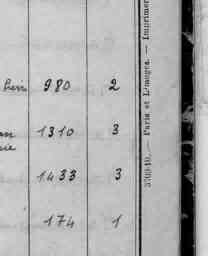 980 2
1310 3
1433 3
174 1
370940. — Paris et Limoges. — Imprimer